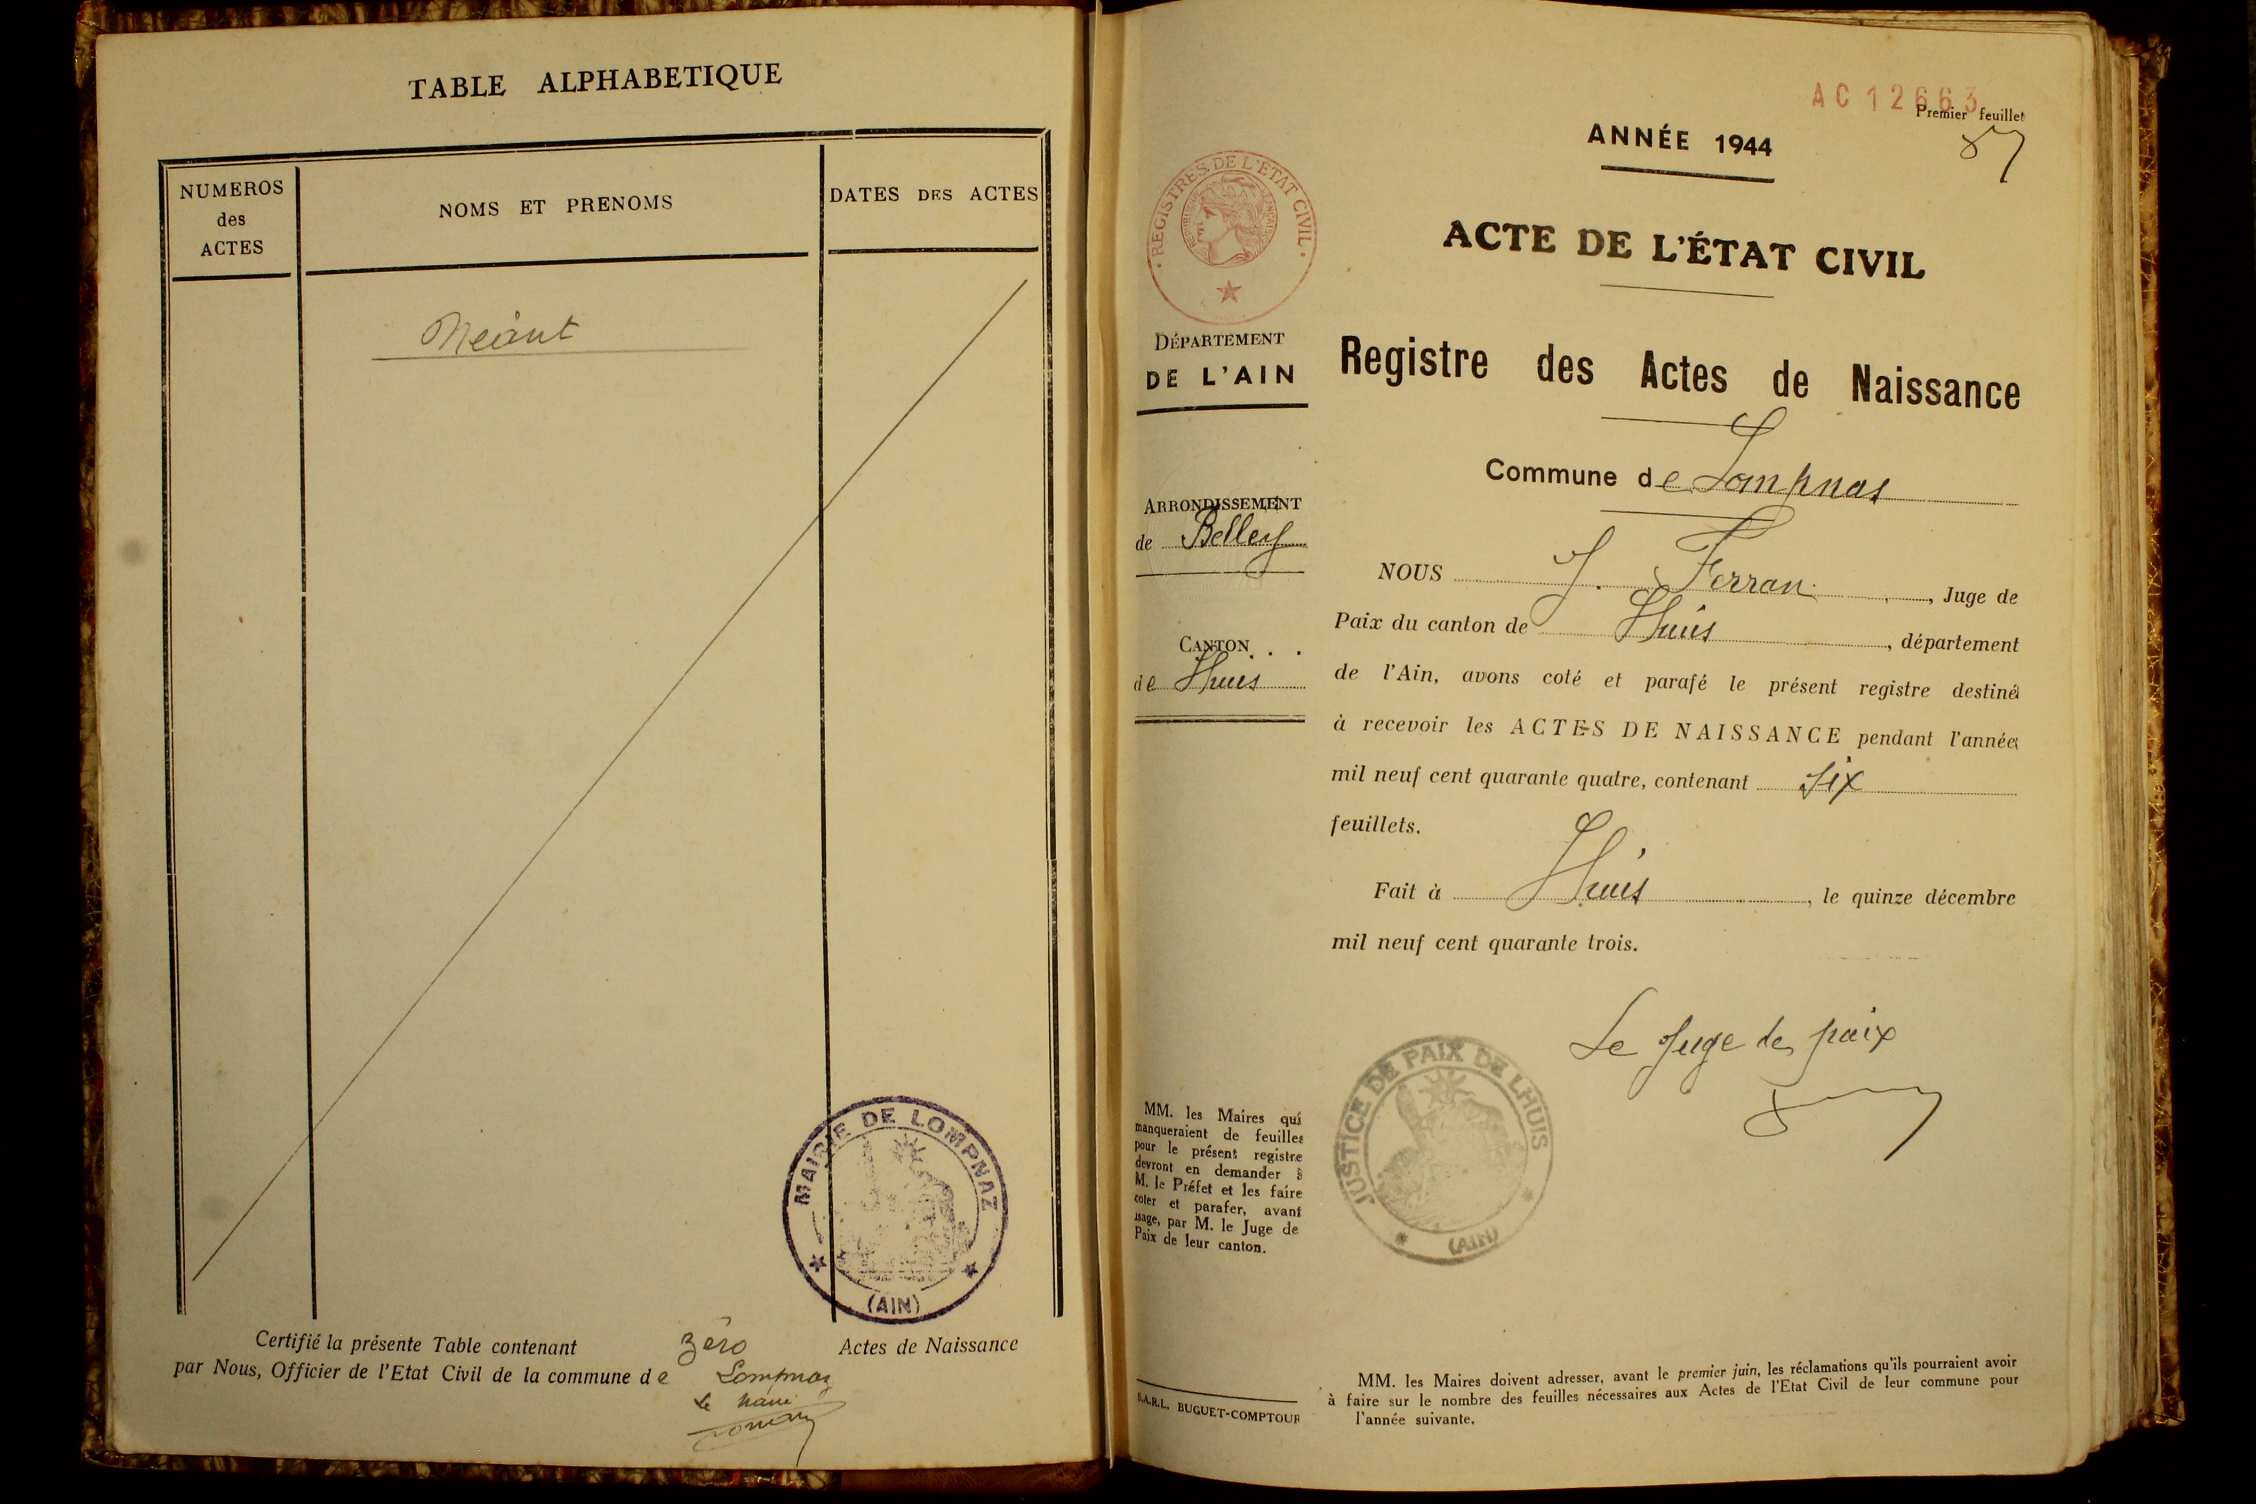 TABLE ALPHABETIQUE
NUMEROS
des
ACTES
NOMS ET PRENOMS
DATES DES ACTES
Néant
MAIRIE DE LOMPNAZ
(AIN)
Certifié la présente Table contenant zéro Actes de Naissance
par Nous, Officier de l'Etat Civil de la commune de Lompnaz
Le Maire
AC 12663
Premier feuillet
ANNÉE 1944
REGISTRES DE L'ETAT CIVIL
ACTE DE L'ÉTAT CIVIL
DÉPARTEMENT
DE L'AIN
Registre des Actes de Naissance
Commune de Lompnas
ARRONDISSEMENT
de Belley
CANTON
de Lhuis
NOUS J. Ferran, Juge de
Paix du canton de Lhuis, département
de l'Ain, avons coté et parafé le présent registre destiné
à recevoir les ACTES DE NAISSANCE pendant l'année
mil neuf cent quarante quatre, contenant six
feuillets.
Fait à Lhuis, le quinze décembre
mil neuf cent quarante trois.
Le Juge de paix
JUSTICE DE PAIX DE LHUIS
(AIN)
MM. les Maires qui
manqueraient de feuilles
pour le présent registre
devront en demander à
M. le Préfet et les faire
coter et parafer, avant
usage, par M. le Juge de
Paix de leur canton.
S.A.R.L. BUGUET-COMPTOUR
MM. les Maires doivent adresser, avant le premier juin, les réclamations qu'ils pourraient avoir
à faire sur le nombre des feuilles nécessaires aux Actes de l'Etat Civil de leur commune pour
l'année suivante.